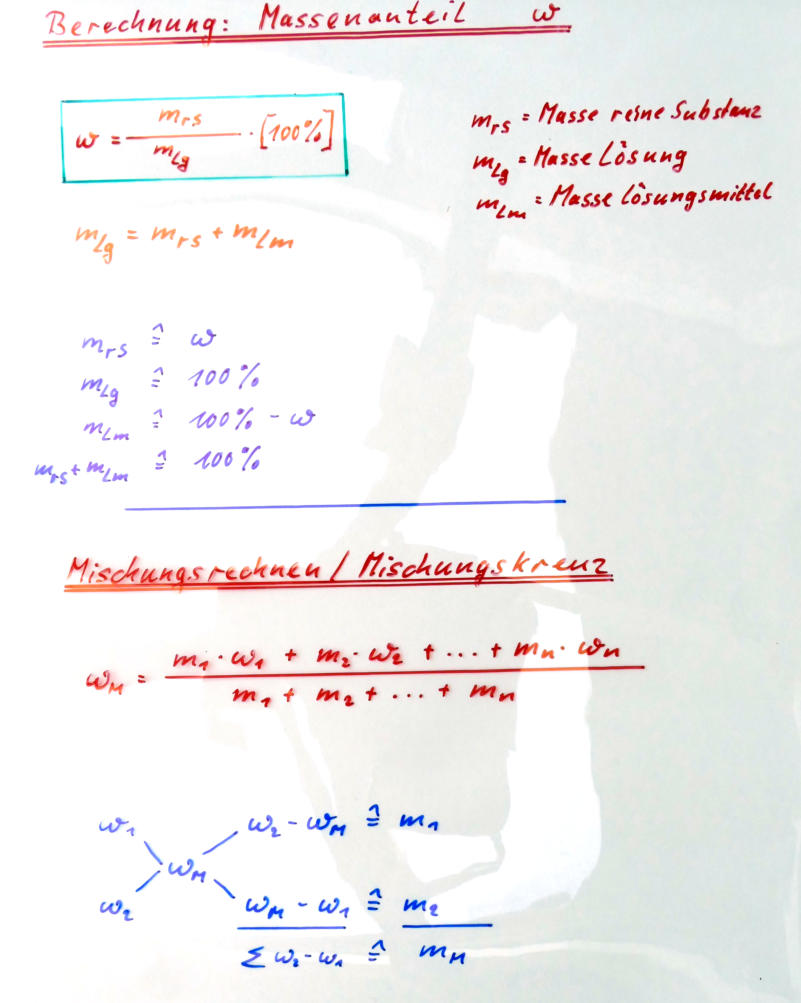 Berechnung: Massenanteil ω
ω = m_rs / m_Lg · [100%]
m_rs = Masse reine Substanz
m_Lg = Masse Lösung
m_Lm = Masse Lösungsmittel
m_Lg = m_rs + m_Lm
m_rs ≙ ω
m_Lg ≙ 100%
m_Lm ≙ 100% - ω
m_rs + m_Lm ≙ 100%
Mischungsrechnen / Mischungskreuz
ω_M = (m_1 · ω_1 + m_2 · ω_2 + ... + m_n · ω_n) / (m_1 + m_2 + ... + m_n)
ω_1 ω_2 - ω_M ≙ m_1
ω_M
ω_2 ω_M - ω_1 ≙ m_2
Σ ω_2 - ω_1 ≙ m_M